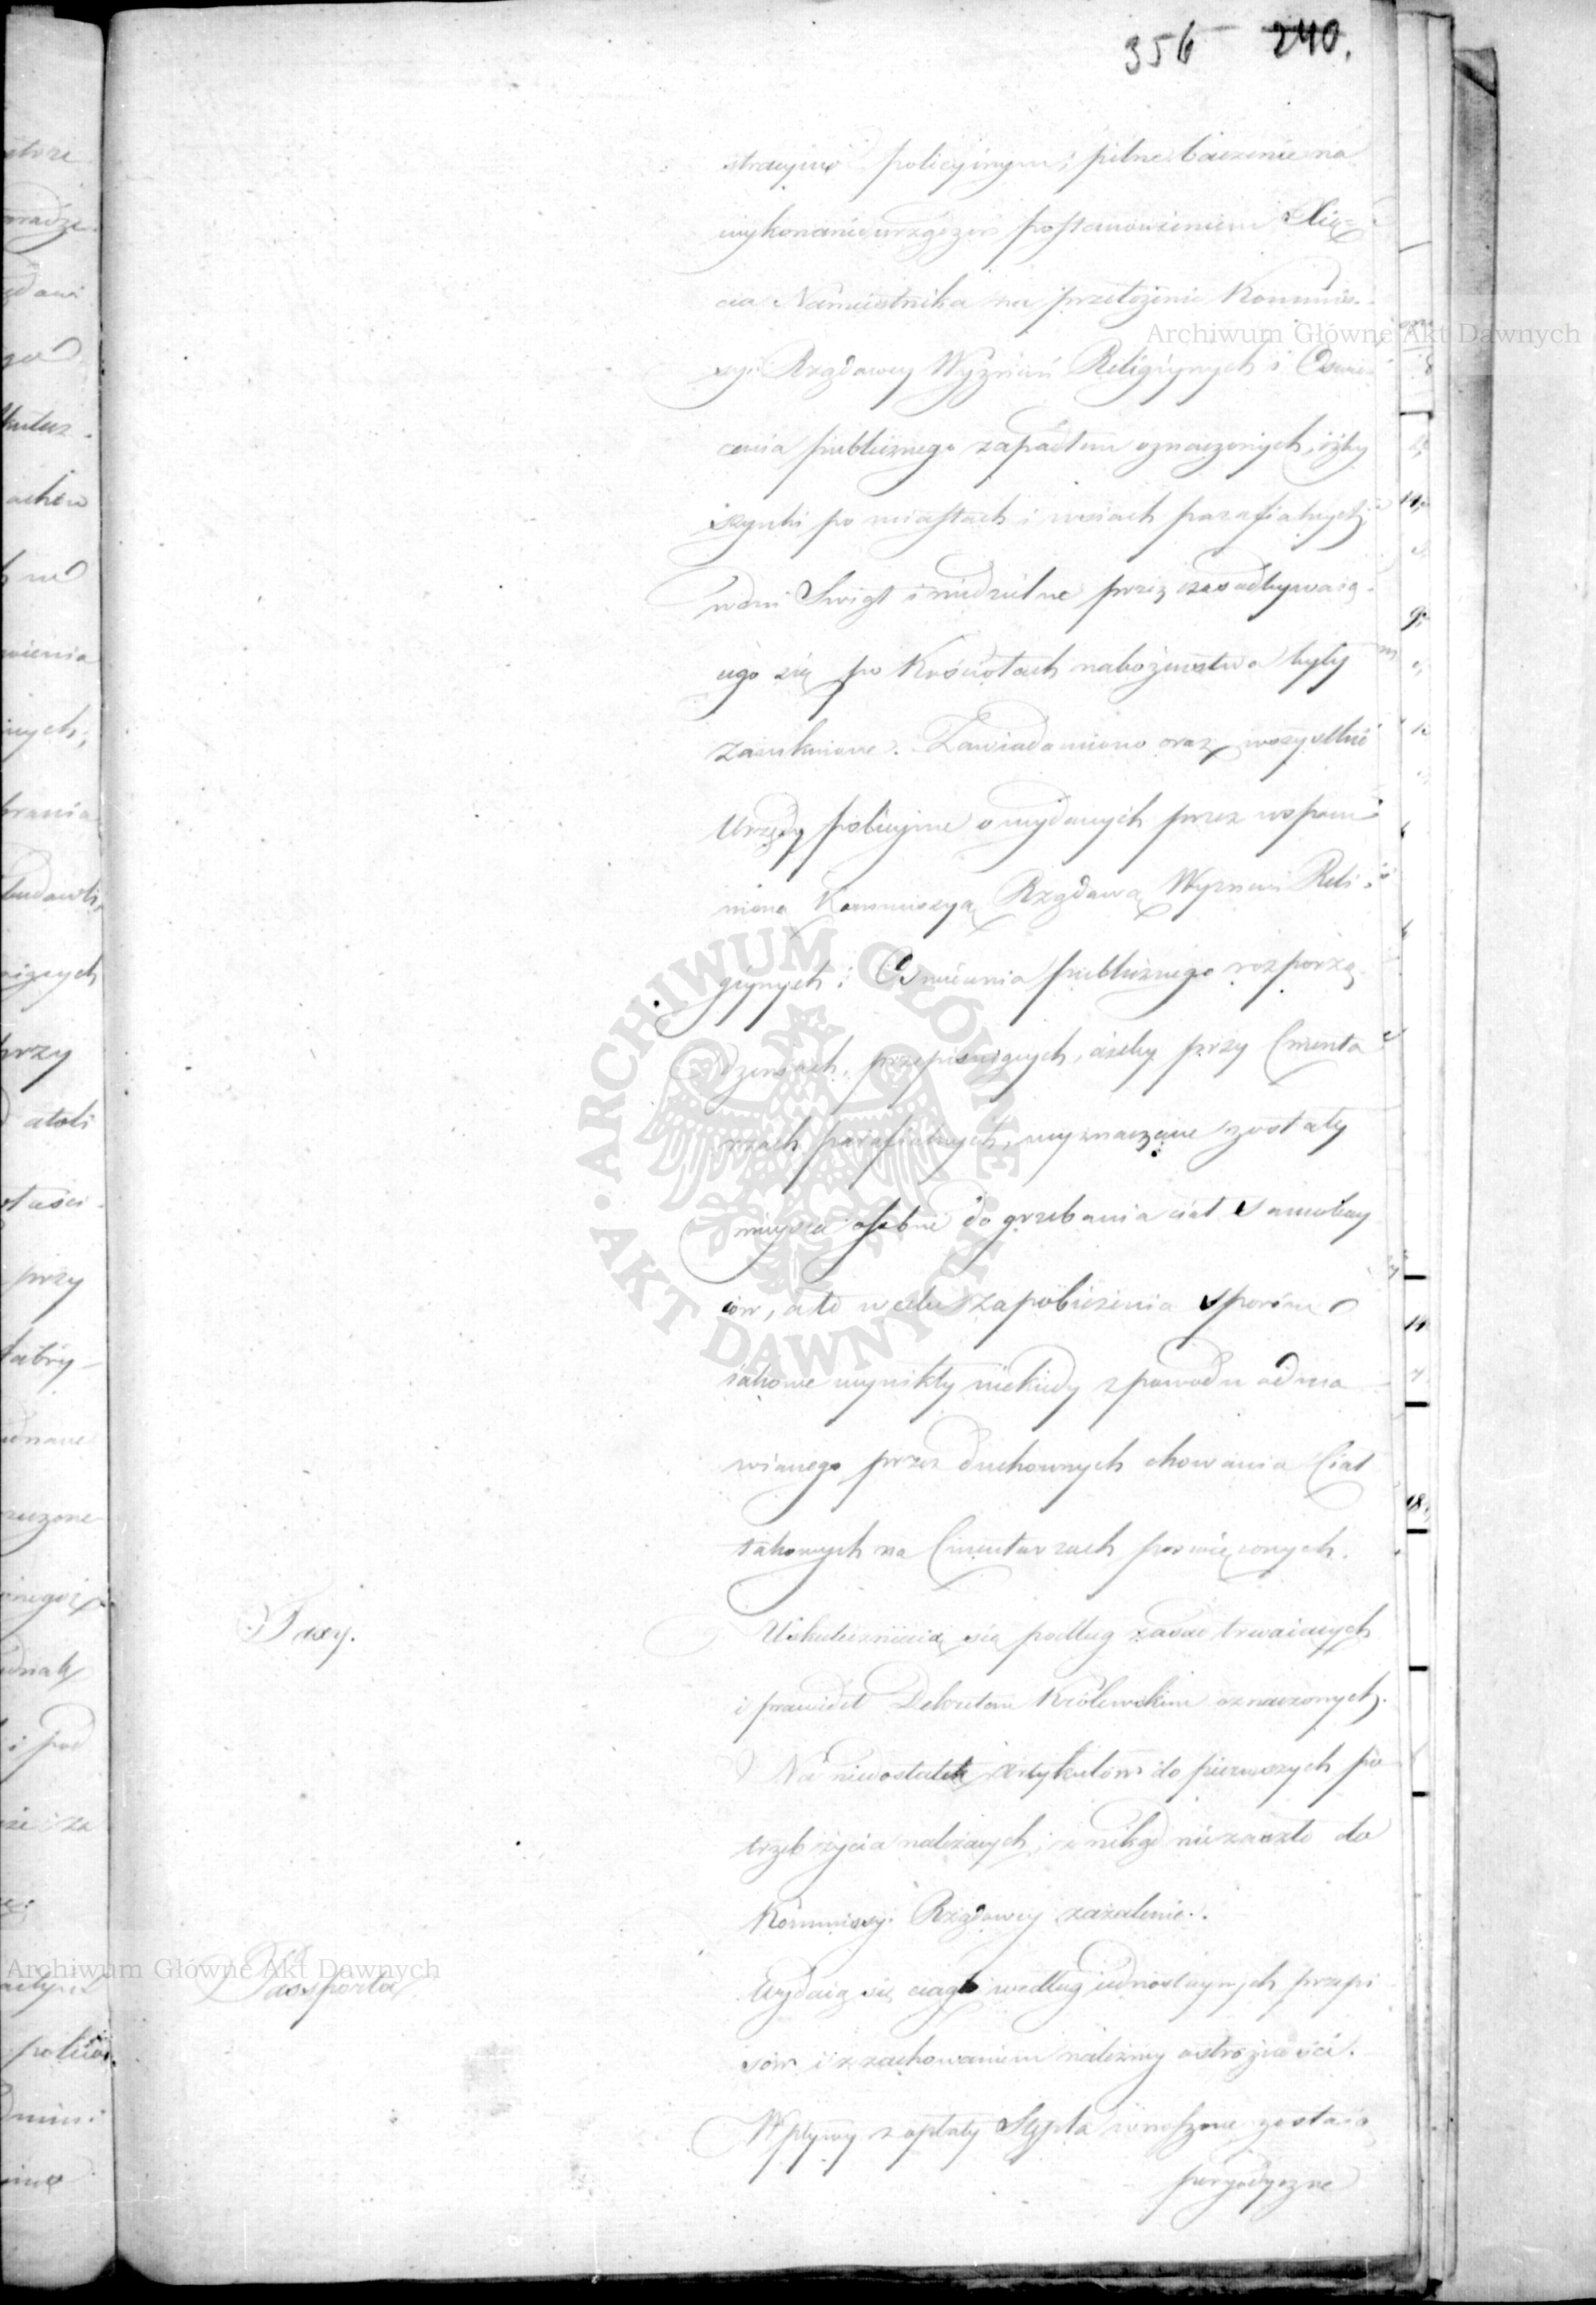 356 240.
stracyino policyinym; pilne baczenie na
wykonanie urządzeń postanowieniem Xię=
cia Namiestnika na przełożenie Kommis-
syi Rządowey Wyznań Religiynych i Oświe
cenia publicznego zapadłem oznaczonych, iżby
szynki po miastach i wsiach parafialnych
w dni Swiąt i niedzielne przez czas odbywaią-
cego się po Kościołach nabożeństwa były
zamknione. Zawiadomiono oraz wszystkie
Urzędy policyine o wydanych przez wspom
nioną Kommissyą Rządową Wyznań Reli
giynych i Oświecenia publicznego rozporzą
dzeniach, przepisuiących, ażeby przy Cmenta
rzach parafialnych, wyznaczone zostały
mieysca osobne do grzebania ciał samobóy
ców, a to w celu zapobieżenia sporów
iakowe wynikły niekiedy z powodu odma
wianego przez duchownych chowania Ciał
takowych na Cmentarzach poswięconych.
Taxy.
Uskuteczniaią się podług zasad trwaiących
i prawideł Dekretem Królewskim oznaczonych.
Na niedostatek artykułów do pierwszych po
trzeb życia należących, z nikąd nie zaszło do
Kommissyi Rządowey zażalenie.
Archiwum Główne Akt Dawnych
Passporta
Wydaią się ciągle według iednostaynych przepi
sów i z zachowaniem należney ostrożności.
Wpływy z opłaty Stępla wnoszone zostaią
peryodyczne
Archiwum Główne Akt Dawnych
ARCHIWUM GŁÓWNE · AKT DAWNYCH ·